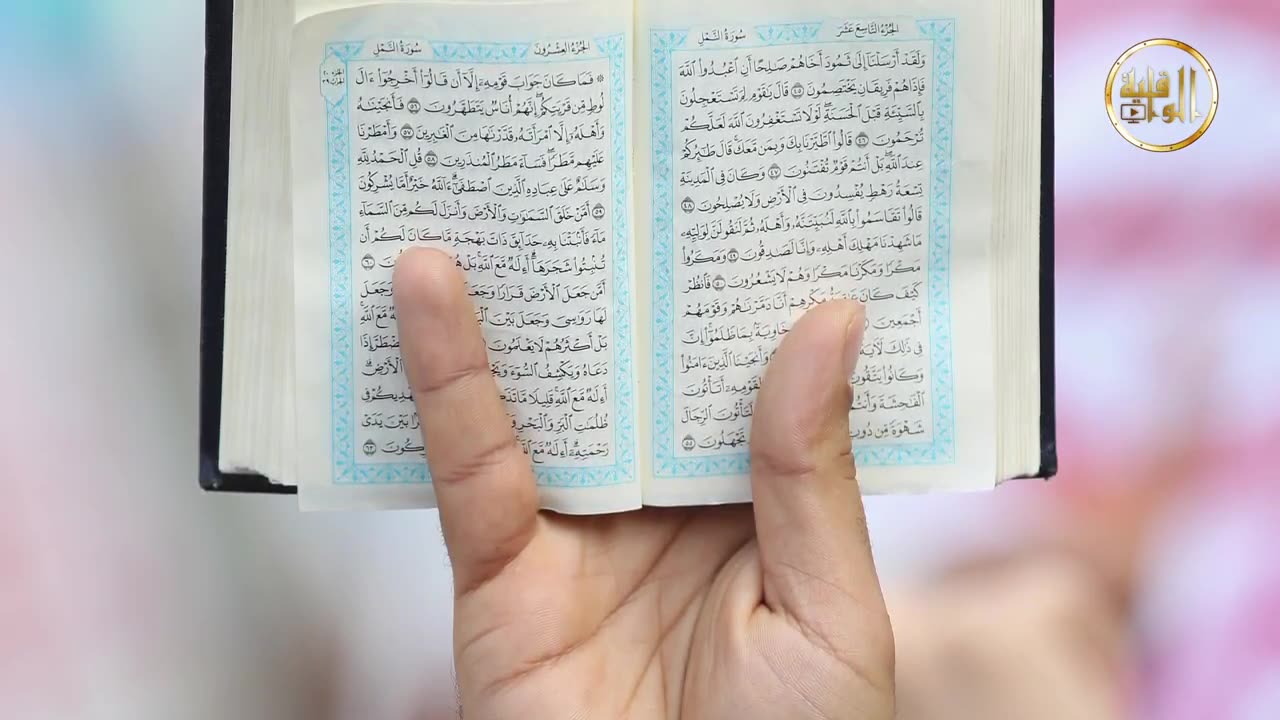 الجُزْءُ التَّاسِعَ عَشَرَ سُورَةُ النَّمْلِ
وَلَقَدْ أَرْسَلْنَآ إِلَىٰ ثَمُودَ أَخَاهُمْ صَٰلِحًا أَنِ ٱعْبُدُوا۟ ٱللَّهَ
فَإِذَا هُمْ فَرِيقَانِ يَخْتَصِمُونَ ٤٥ قَالَ يَٰقَوْمِ لِمَ تَسْتَعْجِلُونَ
بِٱلسَّيِّئَةِ قَبْلَ ٱلْحَسَنَةِ ۖ لَوْلَا تَسْتَغْفِرُونَ ٱللَّهَ لَعَلَّكُمْ
تُرْحَمُونَ ٤٦ قَالُوا۟ ٱطَّيَّرْنَا بِكَ وَبِمَن مَّعَكَ ۚ قَالَ طَٰٓئِرُكُمْ
عِندَ ٱللَّهِ ۖ بَلْ أَنتُمْ قَوْمٌ تُفْتَنُونَ ٤٧ وَكَانَ فِى ٱلْمَدِينَةِ
تِسْعَةُ رَهْطٍ يُفْسِدُونَ فِى ٱلْأَرْضِ وَلَا يُصْلِحُونَ ٤٨
قَالُوا۟ تَقَاسَمُوا۟ بِٱللَّهِ لَنُبَيِّتَنَّهُۥ وَأَهْلَهُۥ ثُمَّ لَنَقُولَنَّ لِوَلِيِّهِۦ
مَا شَهِدْنَا مَهْلِكَ أَهْلِهِۦ وَإِنَّا لَصَٰدِقُونَ ٤٩ وَمَكَرُوا۟
مَكْرًا وَمَكَرْنَا مَكْرًا وَهُمْ لَا يَشْعُرُونَ ٥٠ فَٱنظُرْ
كَيْفَ كَانَ مَكْرِهِمْ أَنَّا دَمَّرْنَٰهُمْ وَقَوْمَهُمْ
أَجْمَعِينَ خَاوِيَةًۢ بِمَا ظَلَمُوٓا۟ ۗ إِنَّ
فِى ذَٰلِكَ لَءَايَةً وَأَنجَيْنَا ٱلَّذِينَ ءَامَنُوا۟
وَكَانُوا۟ يَتَّقُونَ لِقَوْمِهِۦٓ أَتَأْتُونَ
ٱلْفَٰحِشَةَ وَأَنتُمْ لَتَأْتُونَ ٱلرِّجَالَ
شَهْوَةً مِّن دُونِ تَجْهَلُونَ ٥٥
الجُزْءُ العِشْرُونَ سُورَةُ النَّمْلِ
الحِزْبُ ٣٩
۞ فَمَا كَانَ جَوَابَ قَوْمِهِۦٓ إِلَّآ أَن قَالُوٓا۟ أَخْرِجُوٓا۟ ءَالَ
لُوطٍ مِّن قَرْيَتِكُمْ ۖ إِنَّهُمْ أُنَاسٌ يَتَطَهَّرُونَ ٥٦ فَأَنجَيْنَٰهُ
وَأَهْلَهُۥٓ إِلَّا ٱمْرَأَتَهُۥ قَدَّرْنَٰهَا مِنَ ٱلْغَٰبِرِينَ ٥٧ وَأَمْطَرْنَا
عَلَيْهِم مَّطَرًا ۖ فَسَآءَ مَطَرُ ٱلْمُنذَرِينَ ٥٨ قُلِ ٱلْحَمْدُ لِلَّهِ
وَسَلَٰمٌ عَلَىٰ عِبَادِهِ ٱلَّذِينَ ٱصْطَفَىٰٓ ۗ ءَآللَّهُ خَيْرٌ أَمَّا يُشْرِكُونَ
٥٩ أَمَّنْ خَلَقَ ٱلسَّمَٰوَٰتِ وَٱلْأَرْضَ وَأَنزَلَ لَكُم مِّنَ ٱلسَّمَآءِ
مَآءً فَأَنۢبَتْنَا بِهِۦ حَدَآئِقَ ذَاتَ بَهْجَةٍ مَّا كَانَ لَكُمْ أَن
تُنۢبِتُوا۟ شَجَرَهَآ ۗ أَءِلَٰهٌ مَّعَ ٱللَّهِ ۚ بَلْ ٦٠
أَمَّن جَعَلَ ٱلْأَرْضَ قَرَارًا وَجَعَلَ وَجَعَلَ
لَهَا رَوَٰسِىَ وَجَعَلَ بَيْنَ مَّعَ ٱللَّهِ
بَلْ أَكْثَرُهُمْ لَا يَعْلَمُونَ إِذَا
دَعَاهُ وَيَكْشِفُ ٱلسُّوٓءَ ٱلْأَرْضِ ۗ
أَءِلَٰهٌ مَّعَ ٱللَّهِ ۚ قَلِيلًا مَّا فِى
ظُلُمَٰتِ ٱلْبَرِّ وَٱلْبَحْرِ بَيْنَ يَدَىْ
رَحْمَتِهِۦٓ ۗ أَءِلَٰهٌ مَّعَ ٱللَّهِ ٦٣